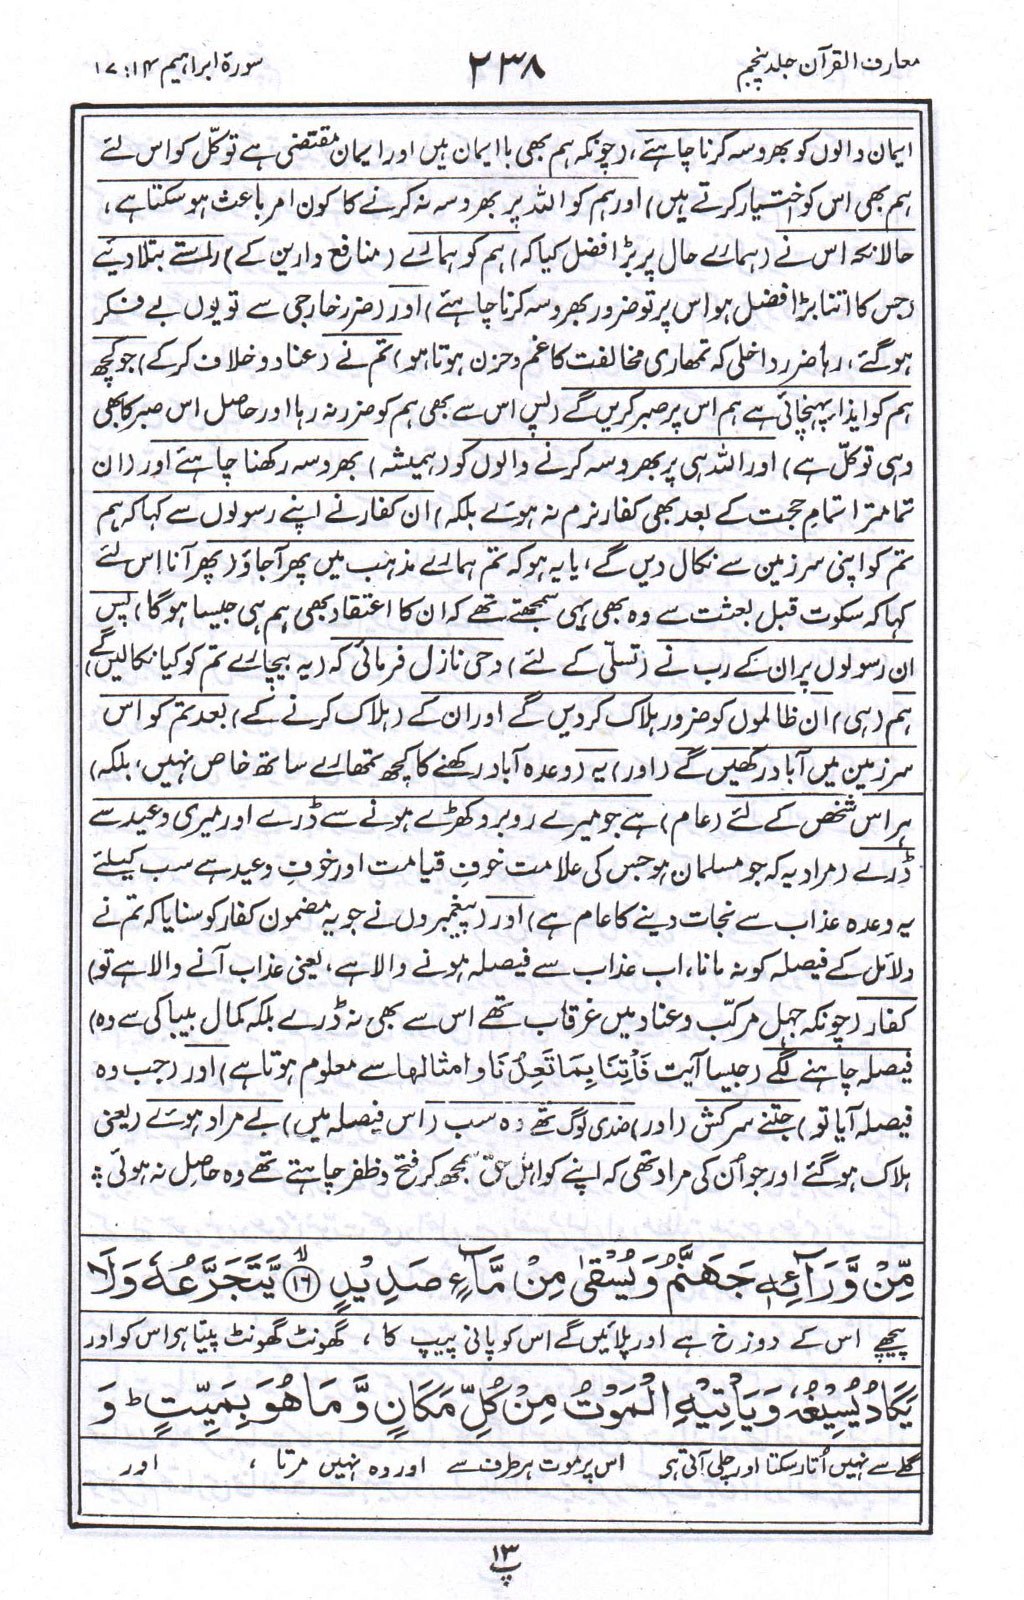 معارف القرآن جلد پنجم
۲۳۸
سورۃ ابراہیم ۱۴ : ۱۷
ایمان والوں کو بھروسہ کرنا چاہئے، (چونکہ ہم بھی باایمان ہیں اور ایمان مقتضی ہے توکّل کو اس لئے
ہم بھی اس کو اختیار کرتے ہیں) اور ہم کو اللہ پر بھروسہ نہ کرنے کا کون امر باعث ہو سکتا ہے،
حالانکہ اس نے (ہمارے حال پر بڑا فضل کیا کہ) ہم کو ہمارے (منافع دارین کے) راستے بتلا دیئے
(جس کا اتنا بڑا فضل ہو اس پر تو ضرور بھروسہ کرنا چاہئے) اور (ضرر خارجی سے تو یوں بے فکر
ہو گئے، رہا ضرر داخلی کہ تمھاری مخالفت کا غم و حزن ہوتا ہو) تم نے (عناد و خلاف کر کے) جو کچھ
ہم کو ایذا پہنچائی ہے ہم اس پر صبر کریں گے (پس اس سے بھی ہم کو ضرر نہ رہا اور حاصل اس صبر کا بھی
وہی توکّل ہے) اور اللہ ہی پر بھروسہ کرنے والوں کو (ہمیشہ) بھروسہ رکھنا چاہئے اور (ان
تمامتر اتمامِ حجت کے بعد بھی کفار نرم نہ ہوئے بلکہ) ان کفار نے اپنے رسولوں سے کہا کہ ہم
تم کو اپنی سرزمین سے نکال دیں گے، یا یہ ہو کہ تم ہمارے مذہب میں پھر آجاؤ (پھر آنا اس لئے
کہا کہ سکوت قبل بعثت سے وہ بھی یہی سمجھتے تھے کہ ان کا اعتقاد بھی ہم ہی جیسا ہو گا) پس
ان رسولوں پر ان کے رب نے (تسلّی کے لئے) وحی نازل فرمائی کہ (یہ بیچارے تم کو کیا نکالیں گے)
ہم (ہی) ان ظالموں کو ضرور ہلاک کر دیں گے اور ان کے (ہلاک کرنے کے) بعد تم کو اس
سرزمین میں آباد رکھیں گے (اور) یہ (وعدہ آباد رکھنے کا کچھ تمھارے ساتھ خاص نہیں، بلکہ)
ہر اس شخص کے لئے (عام) ہے جو میرے روبرو کھڑے ہونے سے ڈرے اور میری وعید سے
ڈرے (مراد یہ کہ جو مسلمان ہو جس کی علامت خوفِ قیامت اور خوفِ وعید ہے سب کیلئے
یہ وعدہ عذاب سے نجات دینے کا عام ہے) اور (پیغمبروں نے جو یہ مضمون کفار کو سنایا کہ تم نے
دلائل کے فیصلہ کو نہ مانا، اب عذاب سے فیصلہ ہونے والا ہے، یعنی عذاب آنے والا ہے تو)
کفار (چونکہ جہل مرکّب و عناد میں غرقاب تھے اس سے بھی نہ ڈرے بلکہ کمال بیباکی سے وہ)
فیصلہ چاہنے لگے (جیسا آیت فَأْتِنَا بِمَا تَعِدُنَا و امثالہا سے معلوم ہوتا ہے) اور (جب وہ
فیصلہ آیا تو) جتنے سرکش (اور) ضدی لوگ تھے وہ سب (اس فیصلہ میں) بے مراد ہوئے (یعنی
ہلاک ہو گئے اور جو ان کی مراد تھی کہ اپنے کو اہلِ حق سمجھ کر فتح و ظفر چاہتے تھے وہ حاصل نہ ہوئی ؛
مِّنْ وَّرَآئِهٖ جَهَنَّمُ وَيُسْقٰى مِنْ مَّآءٍ صَدِيْدٍ ﴿۱۶﴾ يَّتَجَرَّعُهٗ وَلَا
پیچھے اس کے دوزخ ہے اور پلائیں گے اس کو پانی پیپ کا ، گھونٹ گھونٹ پیتا ہو اس کو اور
يَكَادُ يُسِيْغُهٗ وَيَأْتِيْهِ الْمَوْتُ مِنْ كُلِّ مَكَانٍ وَّمَا هُوَ بِمَيِّتٍ ؕ وَ
گلے سے نہیں اُتار سکتا اور چلی آتی ہو اس پر موت ہر طرف سے اور وہ نہیں مرتا ، اور
پ ۱۳